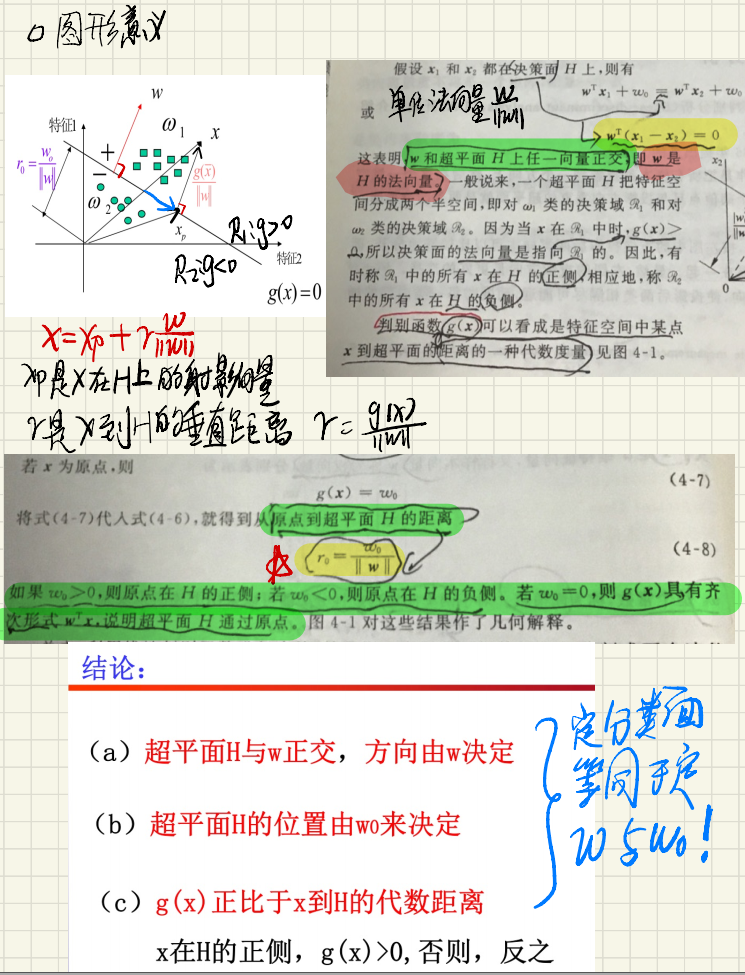 □ 图形意义
w
特征1
ω₁
x
r₀ = w₀/‖w‖
+
−
g(x)/‖w‖
ω₂
xₚ
R₁:g>0
R₂:g<0
特征2
g(x)=0
x=xₚ+r w/‖w‖
xₚ是x在H上的射影向量
r是x到H的垂直距离 r=g(x)/‖w‖
假设 x₁ 和 x₂ 都在决策面 H 上,则有
wᵀx₁ + w₀ = wᵀx₂ + w₀
或 单位法向量 w/‖w‖
wᵀ(x₁ − x₂) = 0
这表明,w 和超平面 H 上任一向量正交,即 w 是
H 的法向量。一般说来,一个超平面 H 把特征空
间分成两个半空间,即对 ω₁ 类的决策域 ℛ₁ 和对
ω₂ 类的决策域 ℛ₂。因为当 x 在 ℛ₁ 中时,g(x)>
0,所以决策面的法向量是指向 ℛ₁ 的。因此,有
时称 ℛ₁ 中的所有 x 在 H 的正侧,相应地,称 ℛ₂
中的所有 x 在 H 的负侧。
判别函数 g(x) 可以看成是特征空间中某点
x 到超平面的距离的一种代数度量,见图 4-1。
x₂
0
若 x 为原点,则
g(x) = w₀
(4-7)
将式(4-7)代入式(4-6),就得到从原点到超平面 H 的距离
r₀ = w₀/‖w‖
(4-8)
如果 w₀>0,则原点在 H 的正侧;若 w₀<0,则原点在 H 的负侧。若 w₀=0,则 g(x)具有齐
次形式 wᵀx,说明超平面 H 通过原点。图 4-1 对这些结果作了几何解释。
结论:
(a)超平面H与w正交,方向由w决定
(b)超平面H的位置由w₀来决定
(c)g(x)正比于x到H的代数距离
x在H的正侧,g(x)>0,否则,反之
定分类面
等同于定
w与w₀!